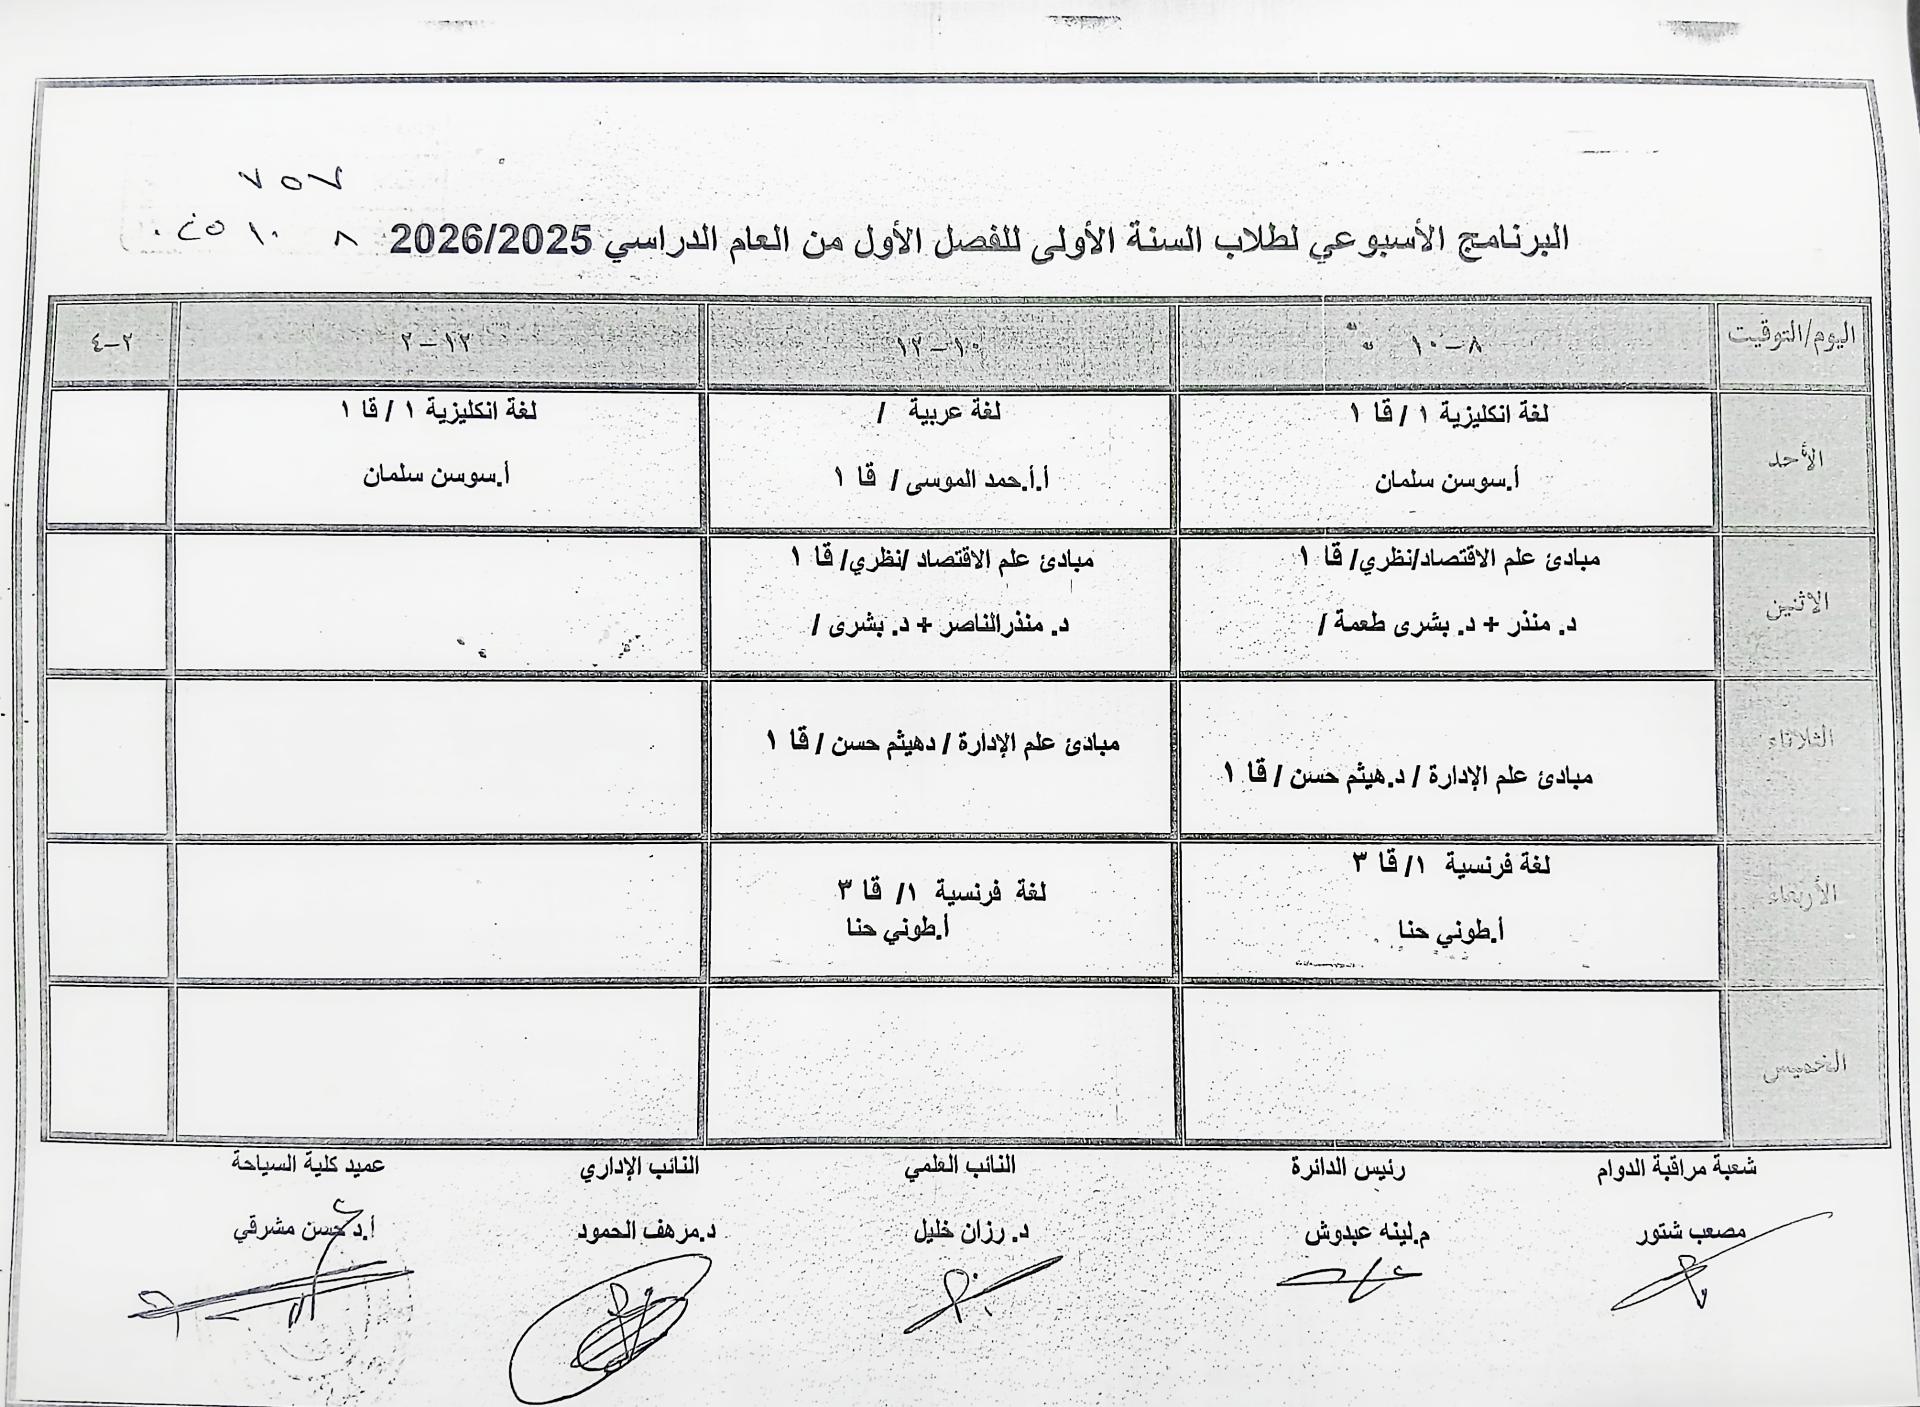 ٧٥٧
البرنامج الأسبوعي لطلاب السنة الأولى للفصل الأول من العام الدراسي 2026/2025
٨ ١٠
اليوم/التوقيت
٨-١٠
١٠-١٢
١٢-٢
٢-٤
الأحد
لغة انكليزية ١ / قا ١
أ.سوسن سلمان
لغة عربية /
أ.أ.حمد الموسى / قا ١
لغة انكليزية ١ / قا ١
أ.سوسن سلمان
الاثنين
مبادئ علم الاقتصاد/نظري/ قا ١
د. منذر + د. بشرى طعمة /
مبادئ علم الاقتصاد /نظري/ قا ١
د. منذرالناصر + د. بشرى /
الثلاثاء
مبادئ علم الإدارة / د.هيثم حسن / قا ١
مبادئ علم الإدارة / دهيثم حسن / قا ١
الأربعاء
لغة فرنسية ١/ قا ٣
أ.طوني حنا
لغة فرنسية ١/ قا ٣
أ.طوني حنا
الخميس
شعبة مراقبة الدوام
رئيس الدائرة
النائب العلمي
النائب الإداري
عميد كلية السياحة
مصعب شتور
م.لينه عبدوش
د. رزان خليل
د.مرهف الحمود
أ.د حسن مشرقي